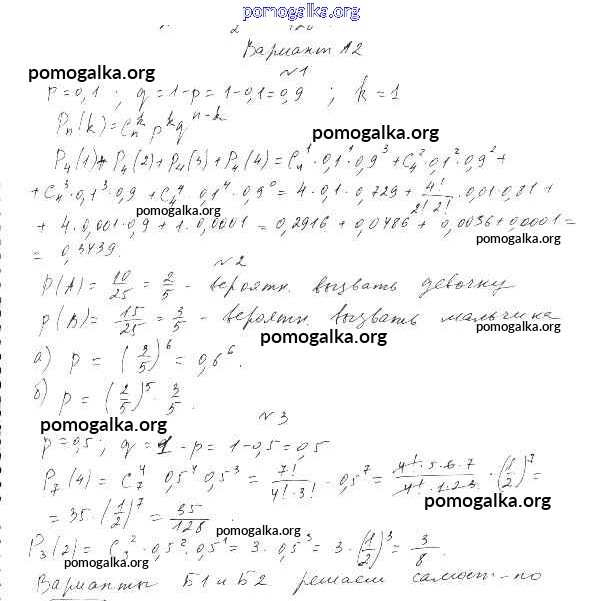 pomogalka.org
Вариант А2
pomogalka.org
№1
p = 0,1 ; q = 1-p = 1-0,1 = 0,9 ; k = 1
Pn(k) = Cn^k p^k q^n-k
pomogalka.org
P4(1) + P4(2) + P4(3) + P4(4) = C4^1 · 0,1^1 · 0,9^3 + C4^2 · 0,1^2 · 0,9^2 +
+ C4^3 · 0,1^3 · 0,9 + C4^4 · 0,1^4 · 0,9^0 = 4 · 0,1 · 0,729 + 4!/2!2! · 0,01 · 0,81 +
pomogalka.org
+ 4 · 0,001 · 0,9 + 1 · 0,0001 = 0,2916 + 0,0486 + 0,0036 + 0,0001 =
pomogalka.org
= 0,3439.
№2
p(A) = 10/25 = 2/5 - вероятн. вызвать девочку
p(B) = 15/25 = 3/5 - вероятн. вызвать мальчика
pomogalka.org
pomogalka.org
а) p = (3/5)^6 = 0,6^6.
б) p = (2/5)^5 · 3/5.
№3
pomogalka.org
p = 0,5 ; q = 1 - p = 1 - 0,5 = 0,5
P7(4) = C7^4 0,5^4 0,5^3 = 7!/4!·3! · 0,5^7 = 4!·5·6·7/4!·1·2·3 · (1/2)^7 =
pomogalka.org
= 35 · (1/2)^7 = 35/128.
pomogalka.org
P3(2) = C3^2 · 0,5^2 · 0,5^1 = 3 · 0,5^3 = 3 · (1/2)^3 = 3/8.
pomogalka.org
pomogalka.org
Варианты Б1 и Б2 решаем самост-но